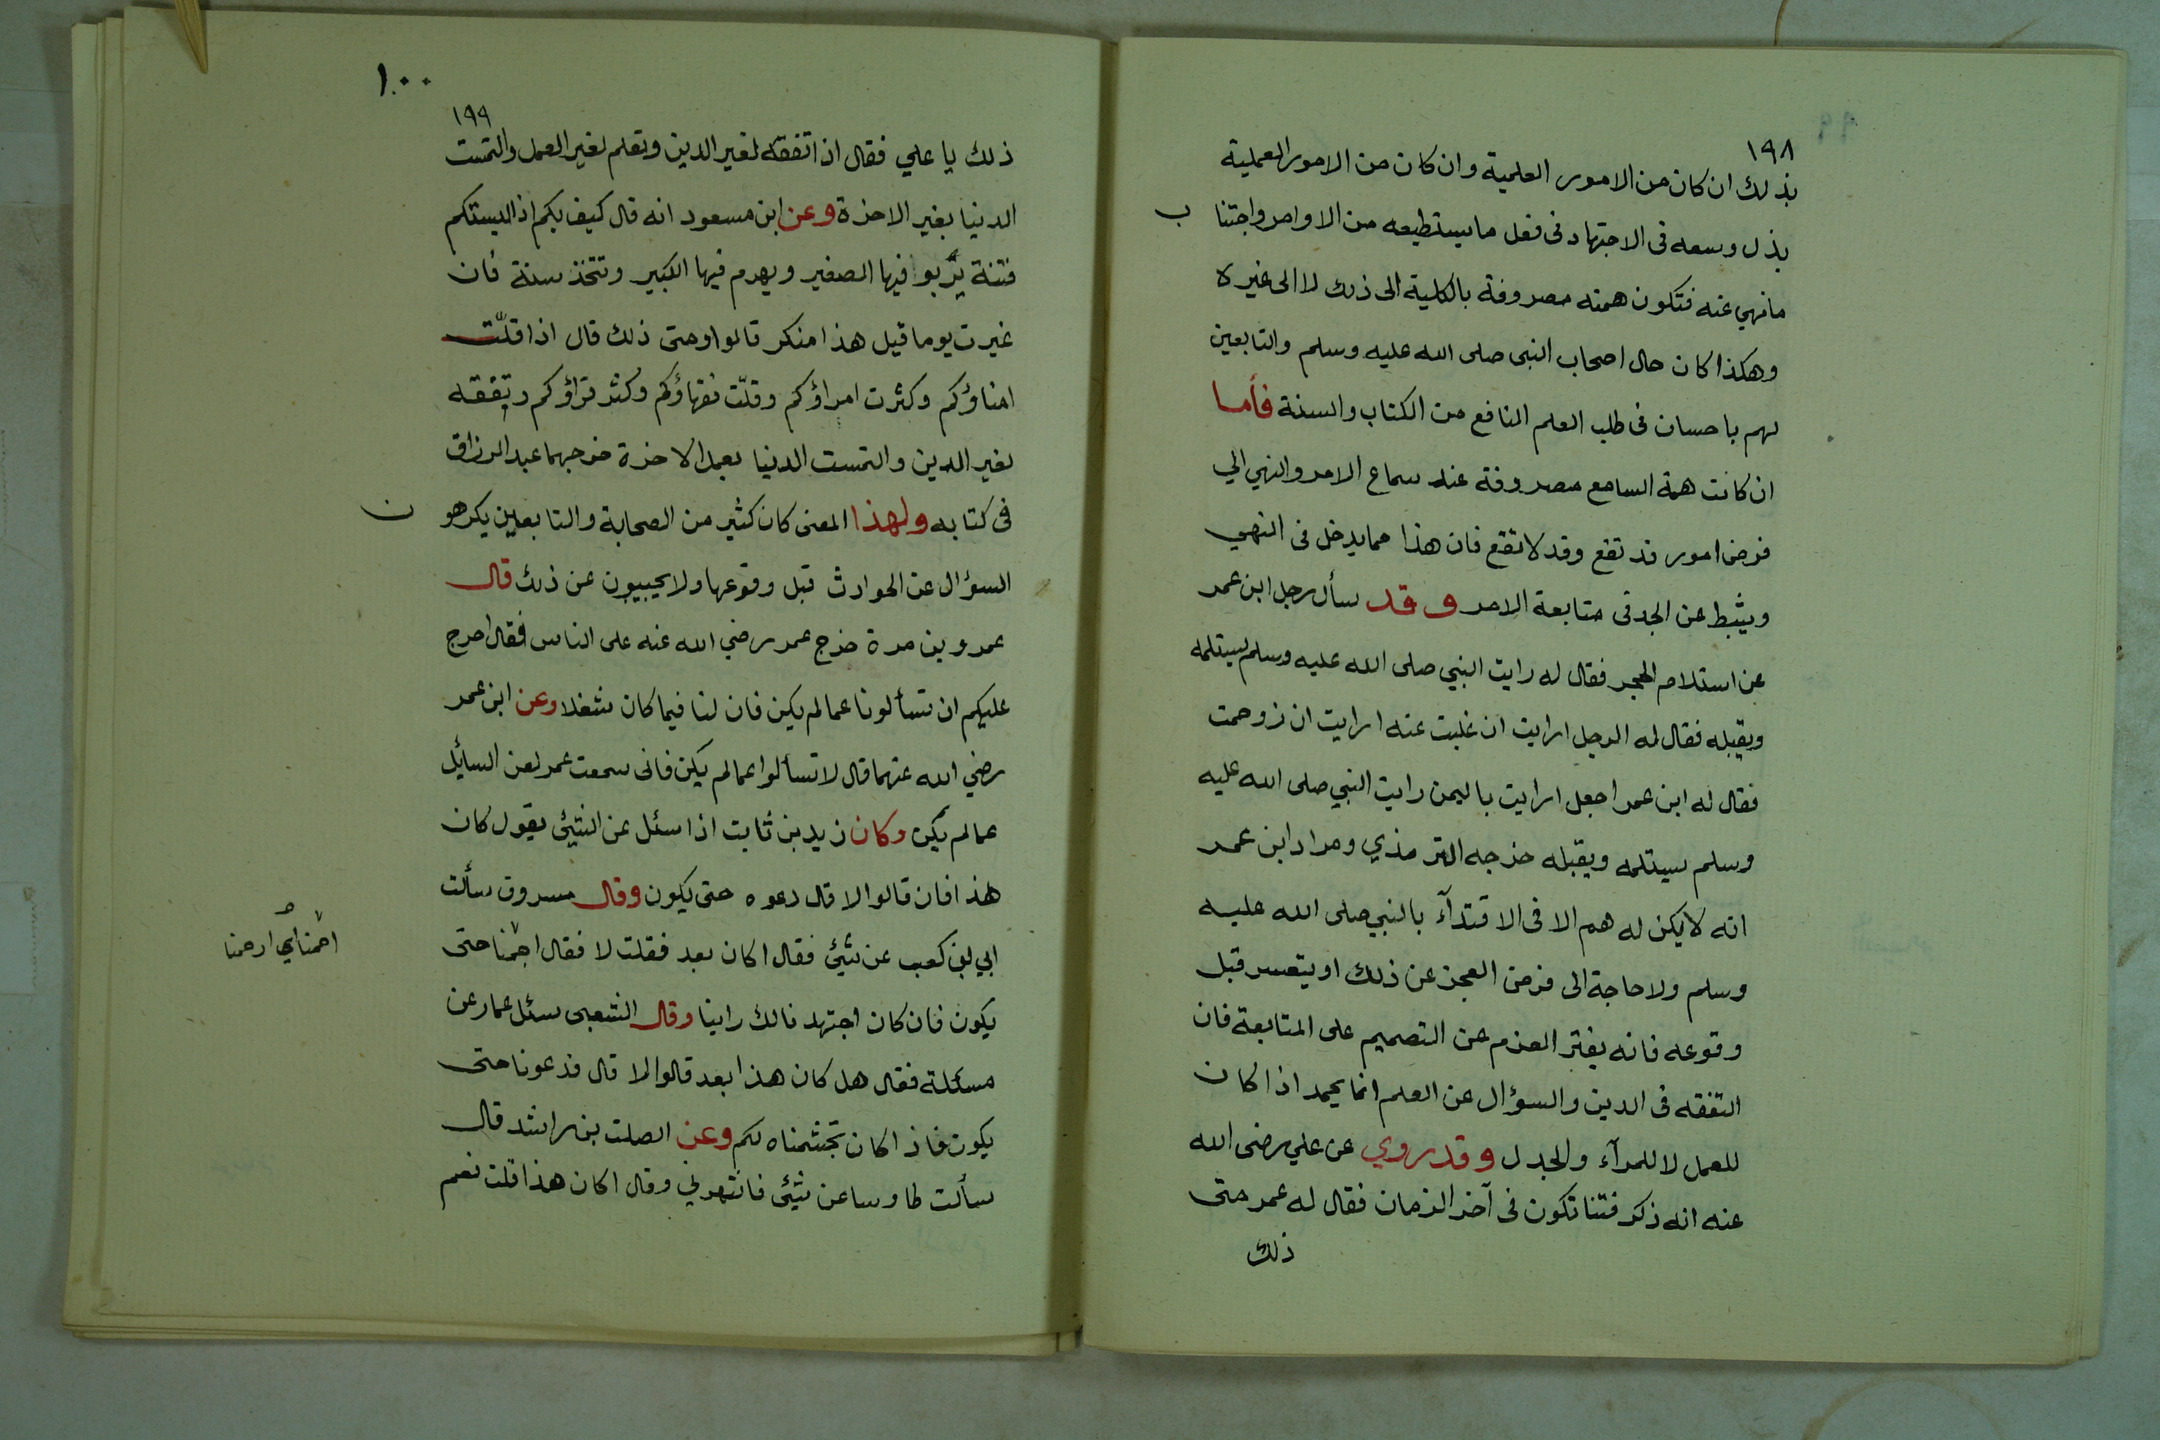 ١٩٨
بذلك ان كان من الامور العلمية وان كان من الامور العملية
بذل وسعه فى الاجتهاد فى فعل ما يستطيعه من الاوامر واجتنا ب
ما نهي عنه فتكون همته مصروفة بالكلية الى ذلك لا الى غيره
وهكذا كان حال اصحاب النبى صلى الله عليه وسلم والتابعين
لهم باحسان فى طلب العلم النافع من الكتاب والسنة فأما
ان كانت همة السامع مصروفة عند سماع الامر والنهي الي
فرض امور قد تقع وقد لا تقع فان هذا مما يدخل فى النهي
ويثبط عن الجد فى متابعة الامر وقد سأل رجل ابن عمر
عن استلام الحجر فقال له رايت النبي صلى الله عليه وسلم يستلمه
ويقبله فقال له الرجل ارايت ان غلبت عنه ارايت ان زوحمت
فقال له ابن عمر اجعل ارايت باليمن رايت النبي صلى الله عليه
وسلم يستلمه ويقبله خرجه الترمذي ومراد ابن عمر
انه لا يكن له هم الا فى الاقتدآء بالنبي صلى الله عليه
وسلم ولا حاجة الى فرض العجز عن ذلك او يتعسر قبل
وقوعه فانه يفتر العزم عن التصميم على المتابعة فان
التفقه فى الدين والسؤال عن العلم انما يحمد اذا كان
للعمل لا للمرآء والجدل وقد روي عن علي رضى الله
عنه انه ذكر فتنا تكون فى آخر الزمان فقال له عمر متى
ذلك
١٠٠
١٩٩
ذلك يا علي فقال اذا تفقه لغير الدين وتعلم لغير العمل والتمست
الدنيا بغير الاخرة وعن ابن مسعود انه قال كيف بكم اذا لبستكم
فتنة يربو فيها الصغير ويهرم فيها الكبير وتتخذ سنة فان
غيرت يوما قيل هذا منكر قالوا ومتى ذلك قال اذا قلّت
امناؤكم وكثرت امراؤكم وقلّت فقهاؤكم وكثر قراؤكم وتفقه
لغير الدين والتمست الدنيا بعمل الاخرة خرجهما عبد الرزاق
فى كتابه ولهذا المعنى كان كثير من الصحابة والتابعين يكرهو ن
السؤال عن الحوادث قبل وقوعها ولا يجيبون عن ذلك قال
عمرو بن مرة خرج عمر رضي الله عنه على الناس فقال احرج
عليكم ان تسألونا عما لم يكن فان لنا فيما كان شغلا وعن ابن عمر
رضي الله عنهما قال لا تسألوا عما لم يكن فانى سمعت عمر لعن السايل
عما لم يكن وكان زيد بن ثابت اذا سئل عن الشيئ يقول كان
هذا فان قالوا لا قال دعوه حتى يكون وقال مسروق سألت
ابي بن كعب عن شيئ فقال اكان بعد فقلت لا فقال اجمنا حتى
اجمنا اي ارحنا
يكون فان كان اجتهدنا لك راينا وقال الشعبى سئل عمار عن
مسئلة فقال هل كان هذا بعد قالوا لا قال فدعونا حتى
يكون فاذا كان تجشمناه لكم وعن الصلت بن راشد قال
سألت طاوسا عن شيئ فانتهرني وقال اكان هذا قلت نعم